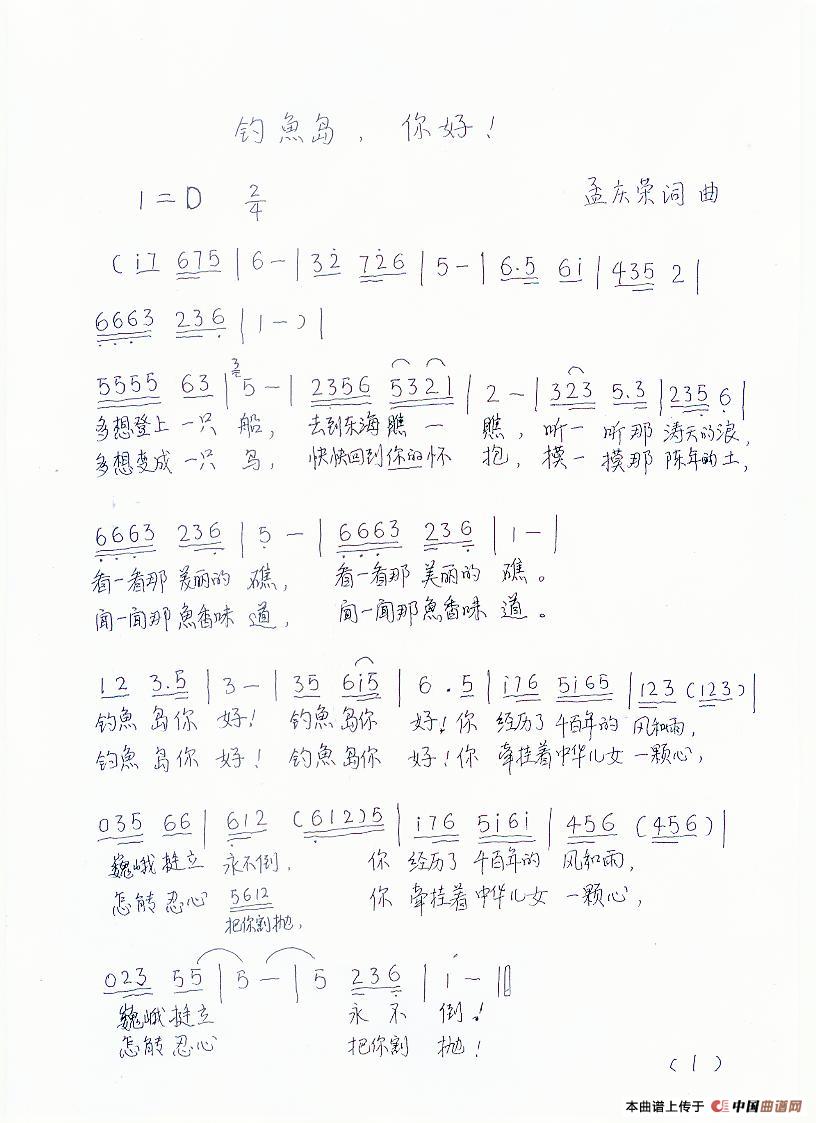 钓魚岛，你好！
1=D 2/4
孟庆荣词曲
( i7 675 | 6 - | 32̇ 72̇6 | 5 - | 6.5 6i | 435 2 |
6663 236 | 1 - ) |
5555 63 | 3 5 - | 2356 5321 | 2 - | 323 5.3 | 235 6 |
多想登上一只船，去到东海瞧一瞧，听一听那涛天的浪，
多想变成一只鸟，快快回到你的怀抱，摸一摸那陈年的土，
6663 236 | 5 - | 6663 236 | 1 - |
看一看那美丽的礁，看一看那美丽的礁。
闻一闻那魚香味道，闻一闻那魚香味道。
12 3.5 | 3 - | 35 6i5 | 6.5 | i76 5i65 | 123 (123) |
钓魚岛你好！钓魚岛你好！你经历了千百年的风和雨，
钓魚岛你好！钓魚岛你好！你牵挂着中华儿女一颗心，
035 66 | 612 (612)5 | i76 5i6i | 456 (456) |
巍峨挺立永不倒，你经历了千百年的风和雨，
怎能忍心 5612 你牵挂着中华儿女一颗心，
把你割抛，
023 55 | 5 - | 5 236 | i - ‖
巍峨挺立永不倒！
怎能忍心把你割抛！
(1)
本曲谱上传于 中国曲谱网